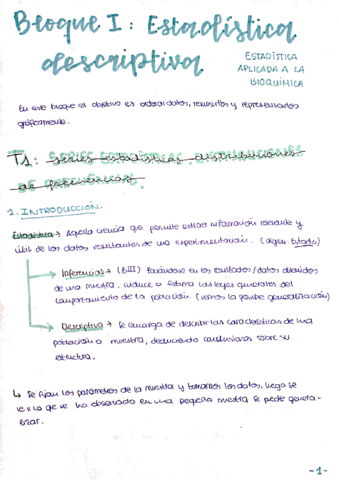 Bloque I: Estadística
descriptiva
ESTADÍSTICA
APLICADA A LA
BIOQUÍMICA
En este bloque el objetivo es ordenar datos, resumirlos y representarlos
gráficamente.
T1: Series estadísticas. distribuciones
de frecuencias.
1. INTRODUCCIÓN.
Estadística → Aquella ciencia que permite extraer información relevante y
útil de los datos resultantes de una experimentación.
Inferencial → (BIII) Basándose en los resultados/datos obtenidos
de una muestra, induce o estima las leyes generales del
comportamiento de la población. (vemos la posible generalización)
Descriptiva → Se encarga de describir las características de una
población o muestra, deduciendo conclusiones sobre su
estructura.
↳ Se fijan los parámetros de la muestra y tomamos los datos, luego se
ve si lo que se ha observado en una pequeña muestra se puede genera-
lizar.
-1-